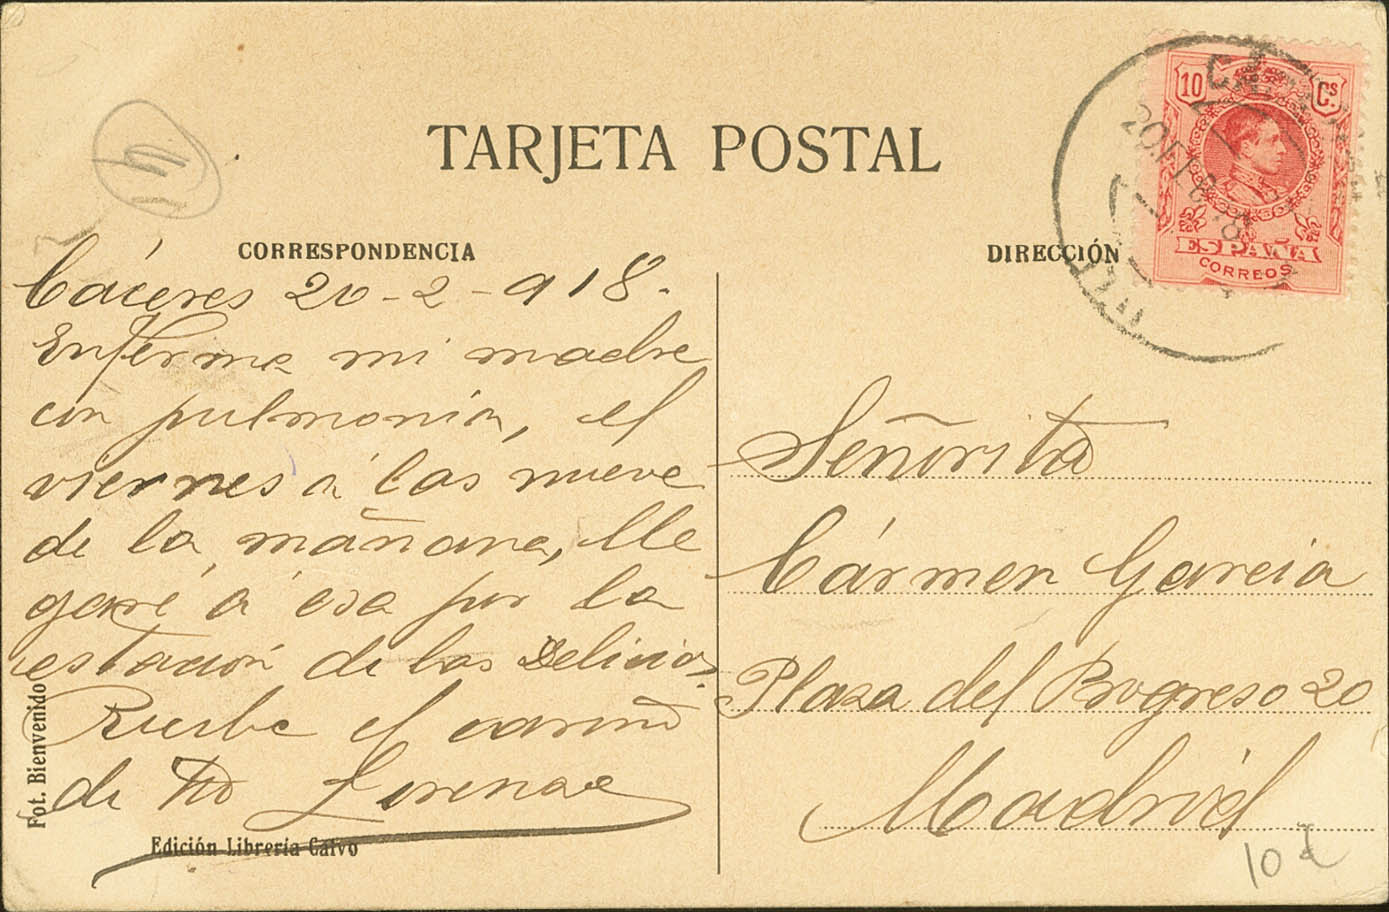 TARJETA POSTAL
CORRESPONDENCIA
Cáceres 20-2-918.
Enferma mi madre
con pulmonía, el
viernes á las nueve
de la mañana, lle
garé á esa por la
estación de las Delicias.
Recibe el cariño
de tu Lorenza
Fot. Bienvenido
Edición Librería Calvo
DIRECCIÓN
10 Cs
ESPAÑA
CORREOS
20 FEB 18
Señorita
Cármen Garcia
Plaza del Progreso 20
Madrid
10